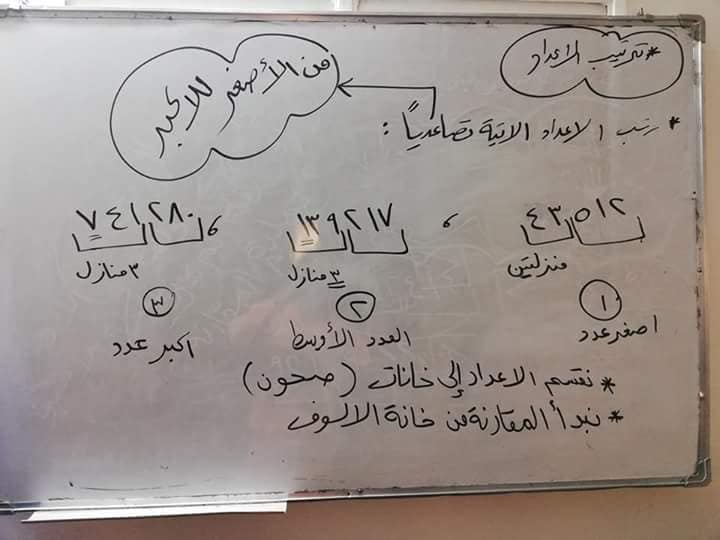 * ترتيب الاعداد
من الأصغر للاكبر
* رتب الاعداد الاتية تصاعدياً :
٤٣٥١٢ ، ١٣٩٢١٧ ، ٧٤١٢٨٠
منزلتين ٣ منازل ٣ منازل
١ ٢ ٣
اصغر عدد العدد الأوسط اكبر عدد
* نقسم الاعداد إلى خانات (صحون)
* نبدأ المقارنة من خانة الالوف